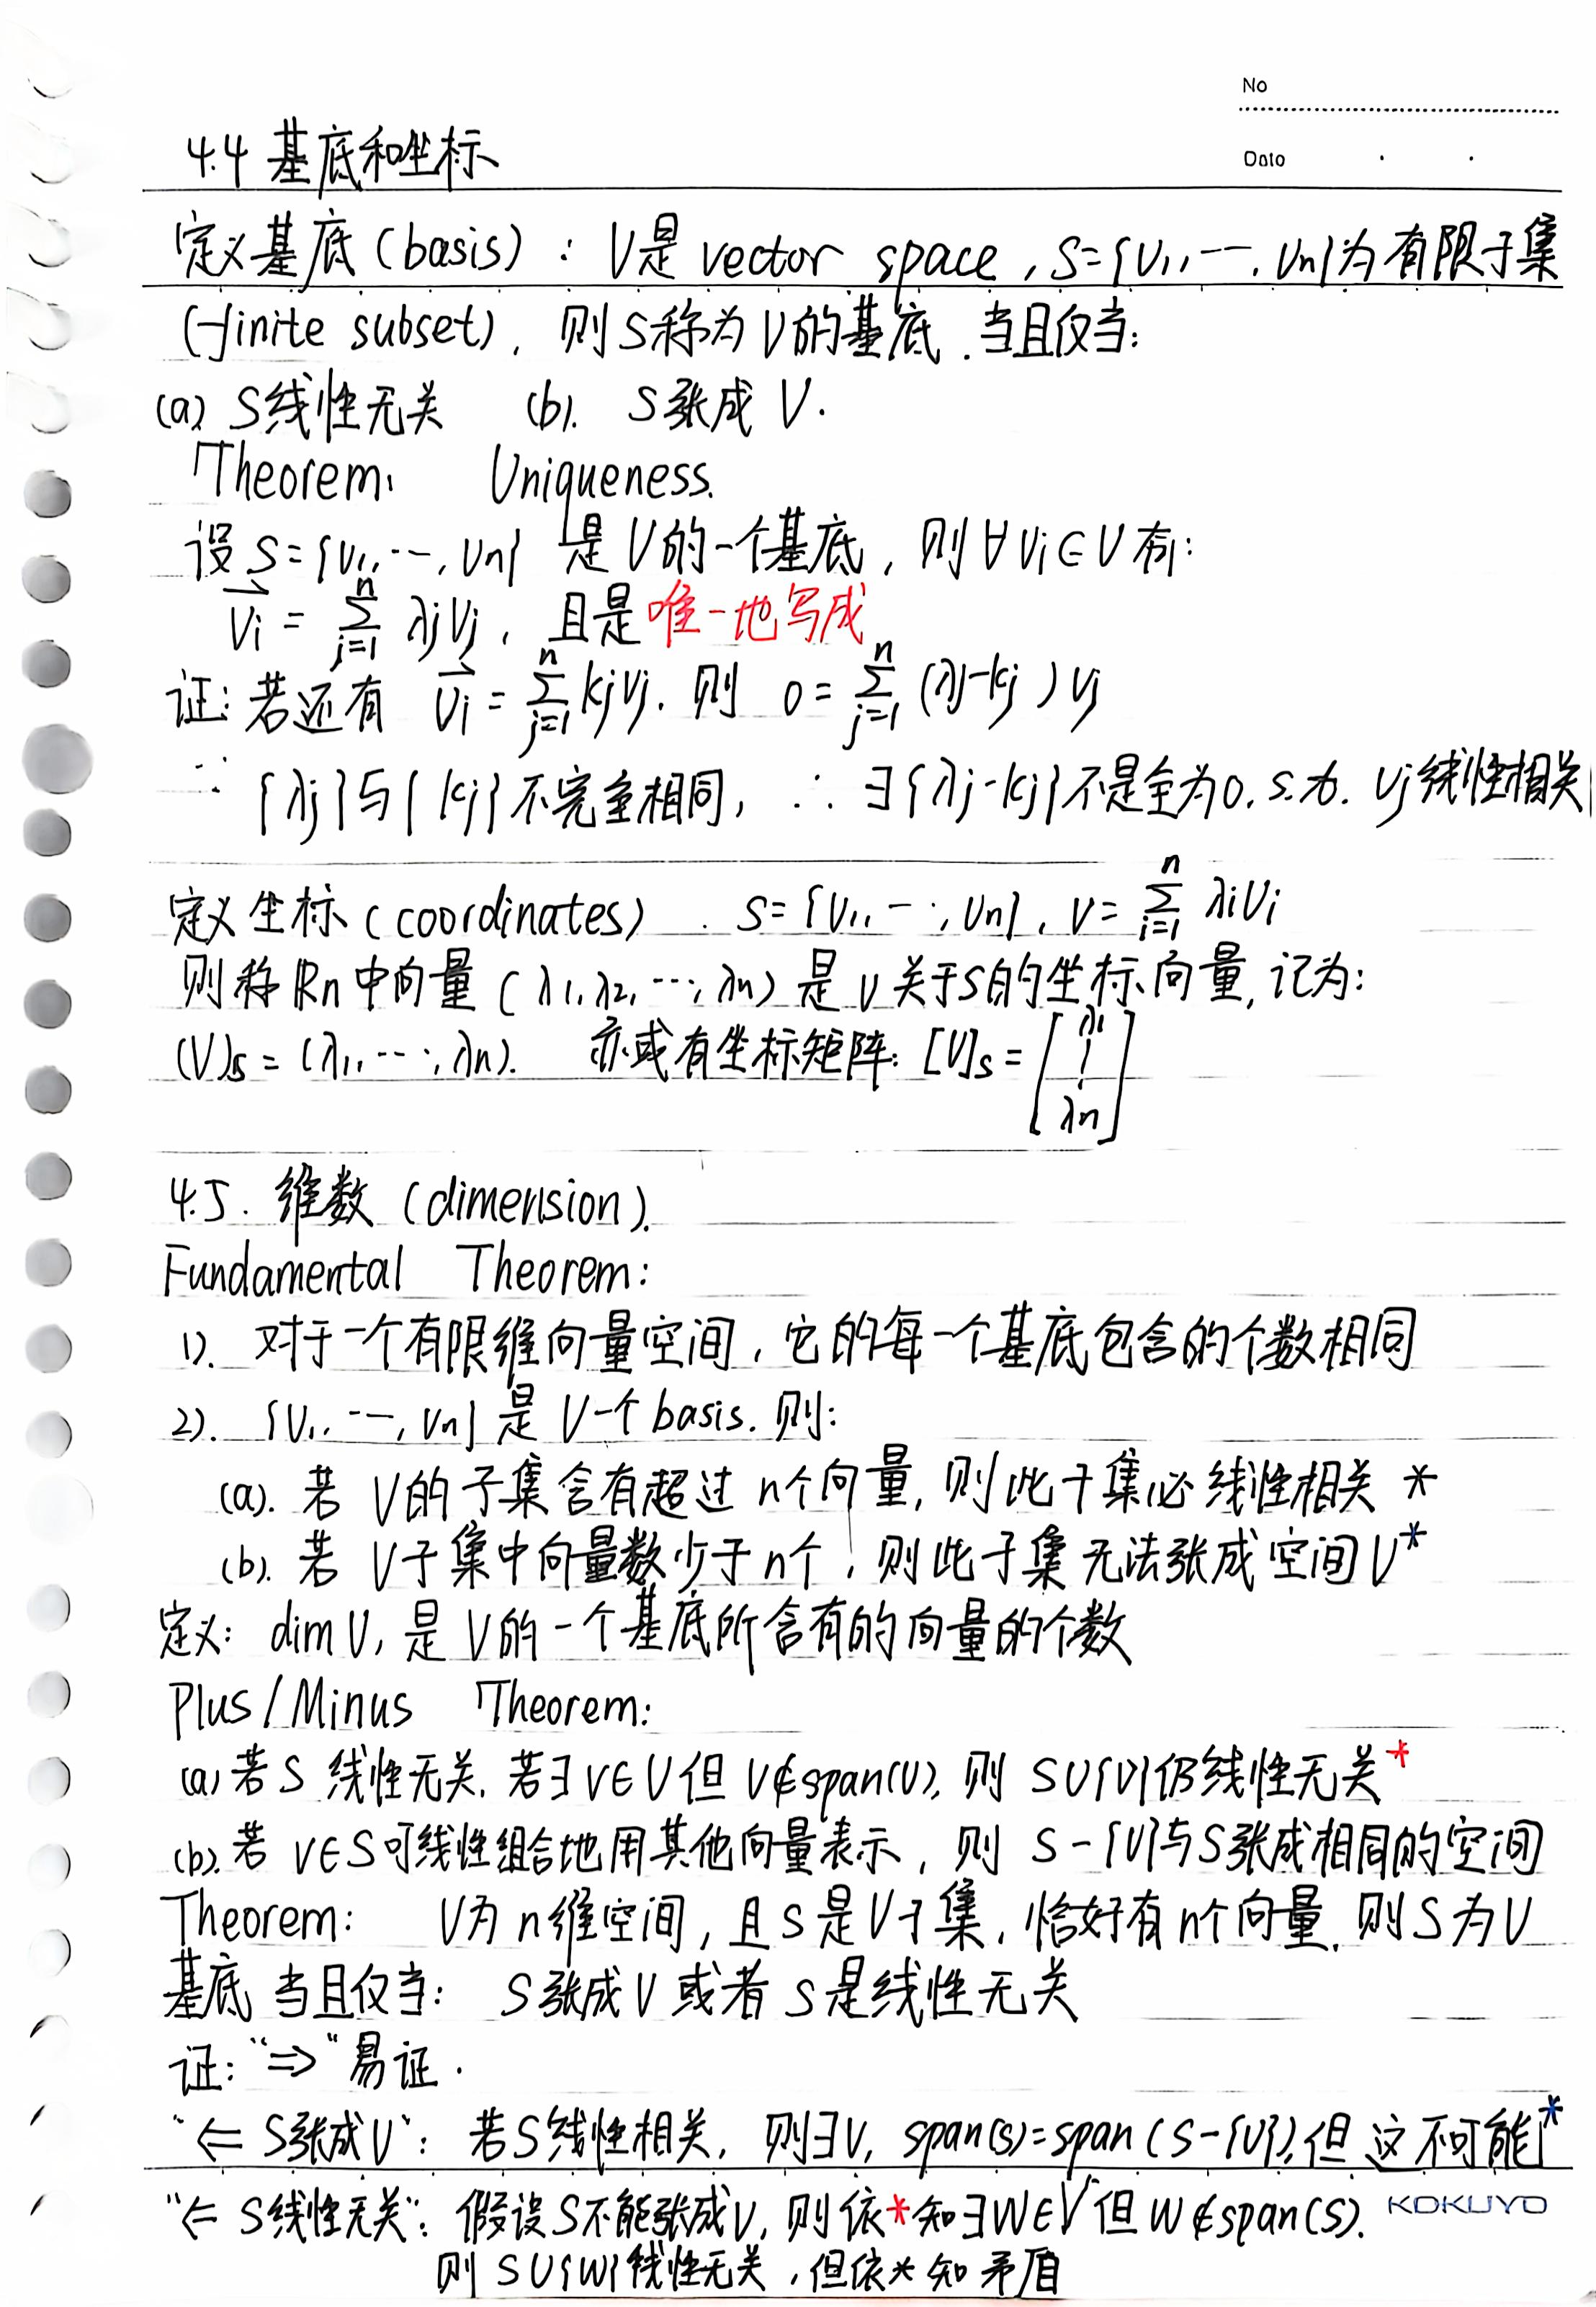 No
Date
4.4 基底和坐标
定义基底(basis): V是 vector space, S={v1, …, vn}为有限子集
(finite subset), 则S称为V的基底, 当且仅当:
(a) S线性无关 (b). S张成 V.
Theorem: Uniqueness.
设 S={v1, …, vn} 是V的一个基底, 则∀vi∈V 有:
v⃗i = ∑_{j=1}^{n} λjvj, 且是唯一地写成
证: 若还有 v⃗i = ∑_{j=1}^{n} kjvj. 则 0 = ∑_{j=1}^{n} (λj-kj)vj
∵ {λj}与{kj}不完全相同, ∴ ∃{λj-kj}不是全为0. s.t. vj线性相关
定义坐标(coordinates). S={v1, …, vn}, v = ∑_{i=1}^{n} λivi
则称 Rn中向量 (λ1, λ2, …, λn) 是 v关于S的坐标向量, 记为:
(V)s = (λ1, …, λn). 亦或有坐标矩阵: [V]s = [λ1 ⋮ λn]
4.5. 维数 (dimension).
Fundamental Theorem:
1). 对于一个有限维向量空间, 它的每一个基底包含的个数相同
2). {v1, …, vn} 是 V一个 basis. 则:
(a). 若 V的子集含有超过 n个向量, 则此子集必线性相关 *
(b). 若 V子集中向量数少于n个, 则此子集无法张成空间V*
定义: dim V, 是 V的一个基底所含有的向量的个数
Plus/Minus Theorem:
(a) 若 S 线性无关. 若∃ v∈V 但 v∉span(V), 则 S∪{v}仍线性无关*
(b). 若 v∈S可线性组合地用其他向量表示, 则 S-{v}与S张成相同的空间
Theorem: V为 n维空间, 且 S 是V子集, 恰好有n个向量. 则S为V
基底 当且仅当: S张成V 或者 S是线性无关
证: "⇒" 易证.
"⇐ S张成V": 若S线性相关, 则∃v, span(s)=span(S-{v}), 但这不可能*
"⇐ S线性无关": 假设S不能张成V, 则依*知∃W∈V但W∉span(S).
KOKUYO
则 S∪{W}线性无关, 但依*知矛盾